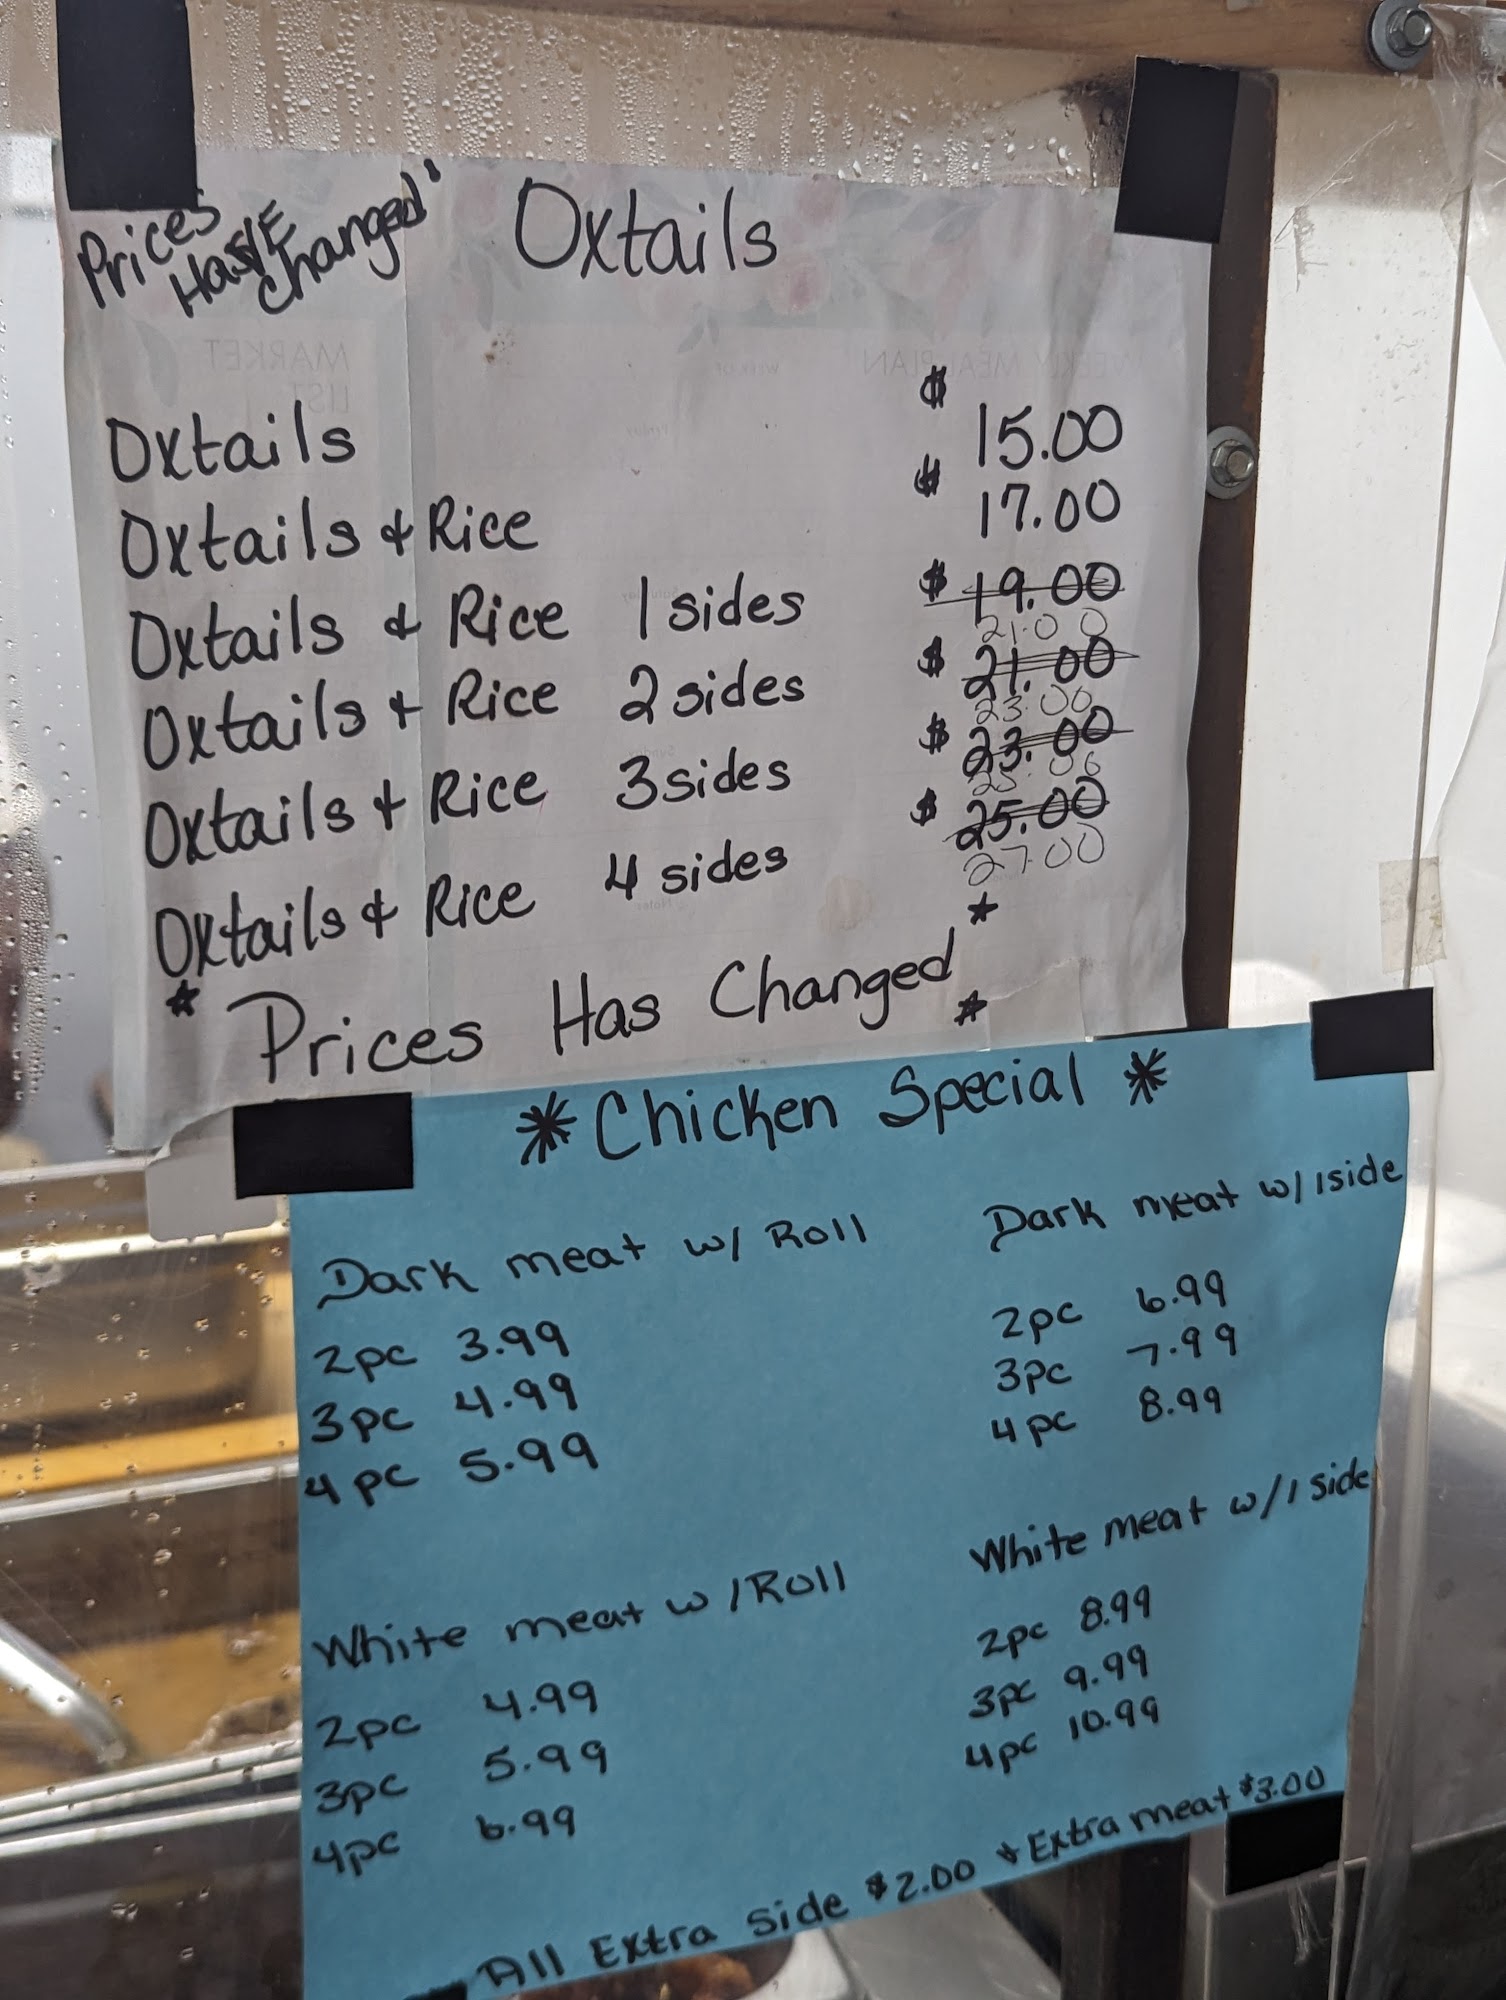 Prices
Has/VE
Changed"
Oxtails
MARKET
LIST
WEEKLY MEAL PLAN
WEEK OF
Oxtails $ 15.00
Oxtails & Rice $ 17.00
Oxtails & Rice 1 sides $ 19.00
21.00
Oxtails + Rice 2 sides $ 21.00
23.00
Oxtails + Rice 3 sides $ 23.00
25.00
Oxtails & Rice 4 sides $ 25.00
27.00
* Prices Has Changed *
*
* Chicken Special *
Dark meat w/ Roll
2pc 3.99
3pc 4.99
4pc 5.99
Dark meat w/ 1 side
2pc 6.99
3pc 7.99
4pc 8.99
White meat w/ Roll
2pc 4.99
3pc 5.99
4pc 6.99
White meat w/ 1 side
2pc 8.99
3pc 9.99
4pc 10.99
All Extra side $2.00 * Extra meat $3.00